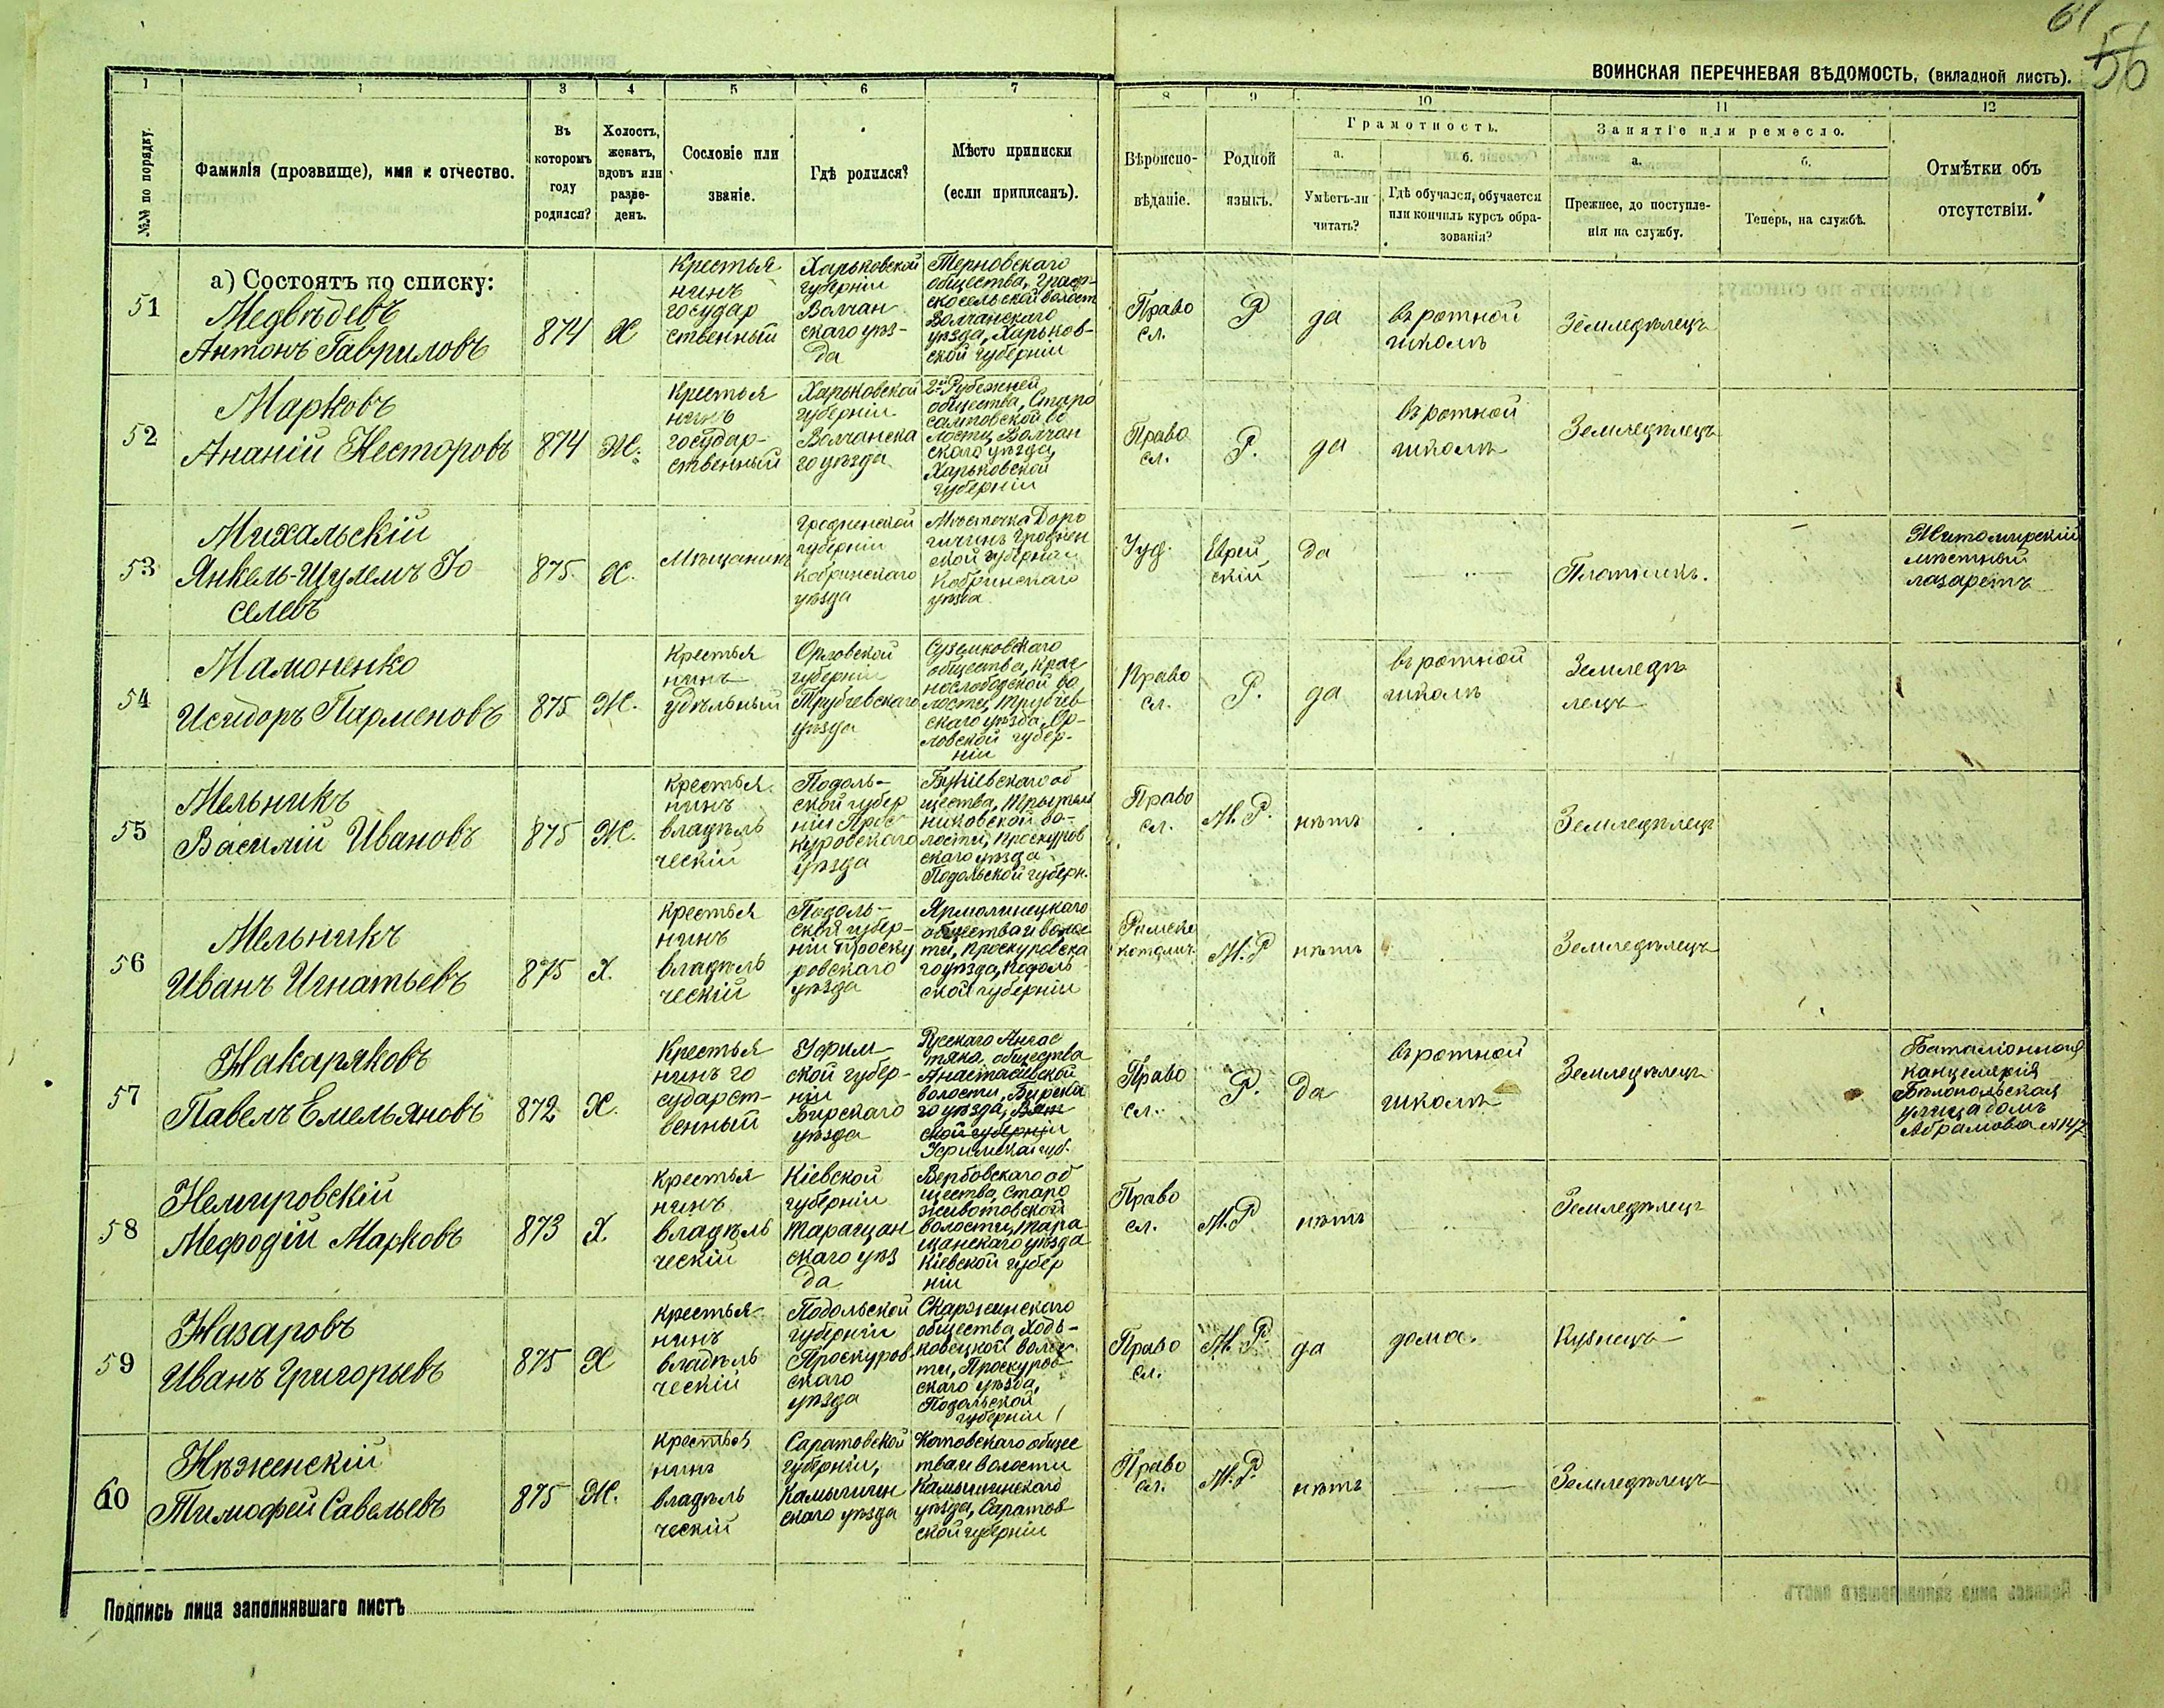 61
56
ВОИНСКАЯ ПЕРЕЧНЕВАЯ ВѢДОМОСТЬ, (вкладной листъ).
1
3
4
5
6
7
8
9
10
11
12
№№ по порядку.
Фамилія (прозвище), имя и отчество.
Въ
которомъ
году
родился?
Холостъ,
женатъ,
вдовъ или
разве-
денъ.
Сословіе или
званіе.
Гдѣ родился?
Мѣсто приписки
(если приписанъ).
Вѣроиспо-
вѣданіе.
Родной
языкъ.
Грамотность.
а.
Умѣетъ-ли
читать?
б.
Гдѣ обучался, обучается
или кончилъ курсъ обра-
зованія?
Занятіе или ремесло.
а.
Прежнее, до поступле-
нія на службу.
б.
Теперь, на службѣ.
Отмѣтки объ
отсутствіи.
а) Состоятъ по списку:
51
Медвѣдевъ
Антонъ Гавриловъ
874
Х
Крестья
нинъ
государ
ственный
Харьковской
губерніи
Волчан
скаго уѣз-
да
Терновскаго
общества,
скосельской волост
Волчанскаго
уѣзда, Харьков-
ской губерніи
Право
сл.
Р
да
въ ротной
школѣ
Земледѣлецъ
52
Марковъ
Ананій Несторовъ
874
Ж.
Крестья
нинъ
государ-
ственный
Харьковской
губерніи
Волчанска
го уѣзда
2й Рубежней
общества, Старо
салтовской во
лости, Волчан
скаго уѣзда,
Харьковской
губерніи
Право
сл.
Р.
да
въ ротной
школѣ
Земледѣлецъ
53
Михальскій
Янкель-Шулемъ Іо
селевъ
875
Х.
Мѣщанинъ
Гродненской
губерніи
Кобринскаго
уѣзда
Мѣстечка Доро
гичинъ Гроднен
ской губерніи
Кобринскаго
уѣзда
Іуд.
Еврей
скій
Да
Плотникъ.
Житомирскій
мѣстный
лазаретъ
54
Мамоненко
Исидоръ Парменовъ
875
Ж.
Крестья
нинъ
удѣльный
Орловской
губерніи
Трубчевскаго
уѣзда
Суземковскаго
общества, Крас
нослободской во
лости, Трубчев
скаго уѣзда, Ор-
ловской губер-
ніи
Право
сл.
Р.
да
въ ротной
школѣ
Земледѣ
лецъ
55
Мельникъ
Василій Ивановъ
875
Ж.
Крестья
нинъ
владѣль
ческій
Подоль-
ской губер
ніи Прос
куровскаго
уѣзда
об
щества,
никовской во-
лости, Проскуров
скаго уѣзда
Подольской губерн.
Право
сл.
М. Р.
нѣтъ
Земледѣлецъ
56
Мельникъ
Иванъ Игнатьевъ
875
Х.
Крестья
нинъ
владѣль
ческій
Подоль-
ской губер-
ніи Проску
ровскаго
уѣзда
Ярмолинецкаго
общества и волос
ти, Проскуровска
го уѣзда, Подоль
ской губерніи
Римско
католич.
М. Р
нѣтъ
Земледѣлецъ
57
Накаряковъ
Павелъ Емельяновъ
872
Х.
Крестья
нинъ го
сударст-
венный
Уфим-
ской губер-
ніи
Бирскаго
уѣзда
Русскаго Ангас
тяка, общества
Анастасіевской
волости, Бирска
го уѣзда, Вят
ской губерніи
Уфимской губ.
Право
сл.
Р.
Да
въ ротной
школѣ
Земледѣлецъ
Баталіонная
канцелярія
Бѣлопольская
улица домъ
Абрамова №147
58
Немировскій
Мефодій Марковъ
873
Х
Крестья
нинъ
владѣль
ческій
Кіевской
губерніи
Таращан
скаго уѣз
да
Вербовскаго об
щества, Старо
животовской
волости, Тара
щанскаго уѣзда
Кіевской губер
ніи
Право
сл.
М. Р
нѣтъ
Земледѣлецъ
59
Назаровъ
Иванъ Григорьевъ
875
Х
Крестья-
нинъ
владѣль
ческій
Подольской
губерніи
Проскуров
скаго
уѣзда
Скаржинскаго
общества, Ходь-
ковецкой волос
ти, Проскуров
скаго уѣзда,
Подольской
губерніи
Право
сл.
М. Р.
да
дома.
Кузнецъ
60
Нѣженскій
Тимофей Савельевъ
875
Ж.
Крестья
нинъ
владѣль
ческій
Саратовской
губерніи,
Камышин
скаго уѣзда
Котовскаго общес
тва и волости
Камышинскаго
уѣзда, Саратов
ской губерніи
Право
сл.
М. Р.
нѣтъ
Земледѣлецъ
Подпись лица заполнявшаго листъ